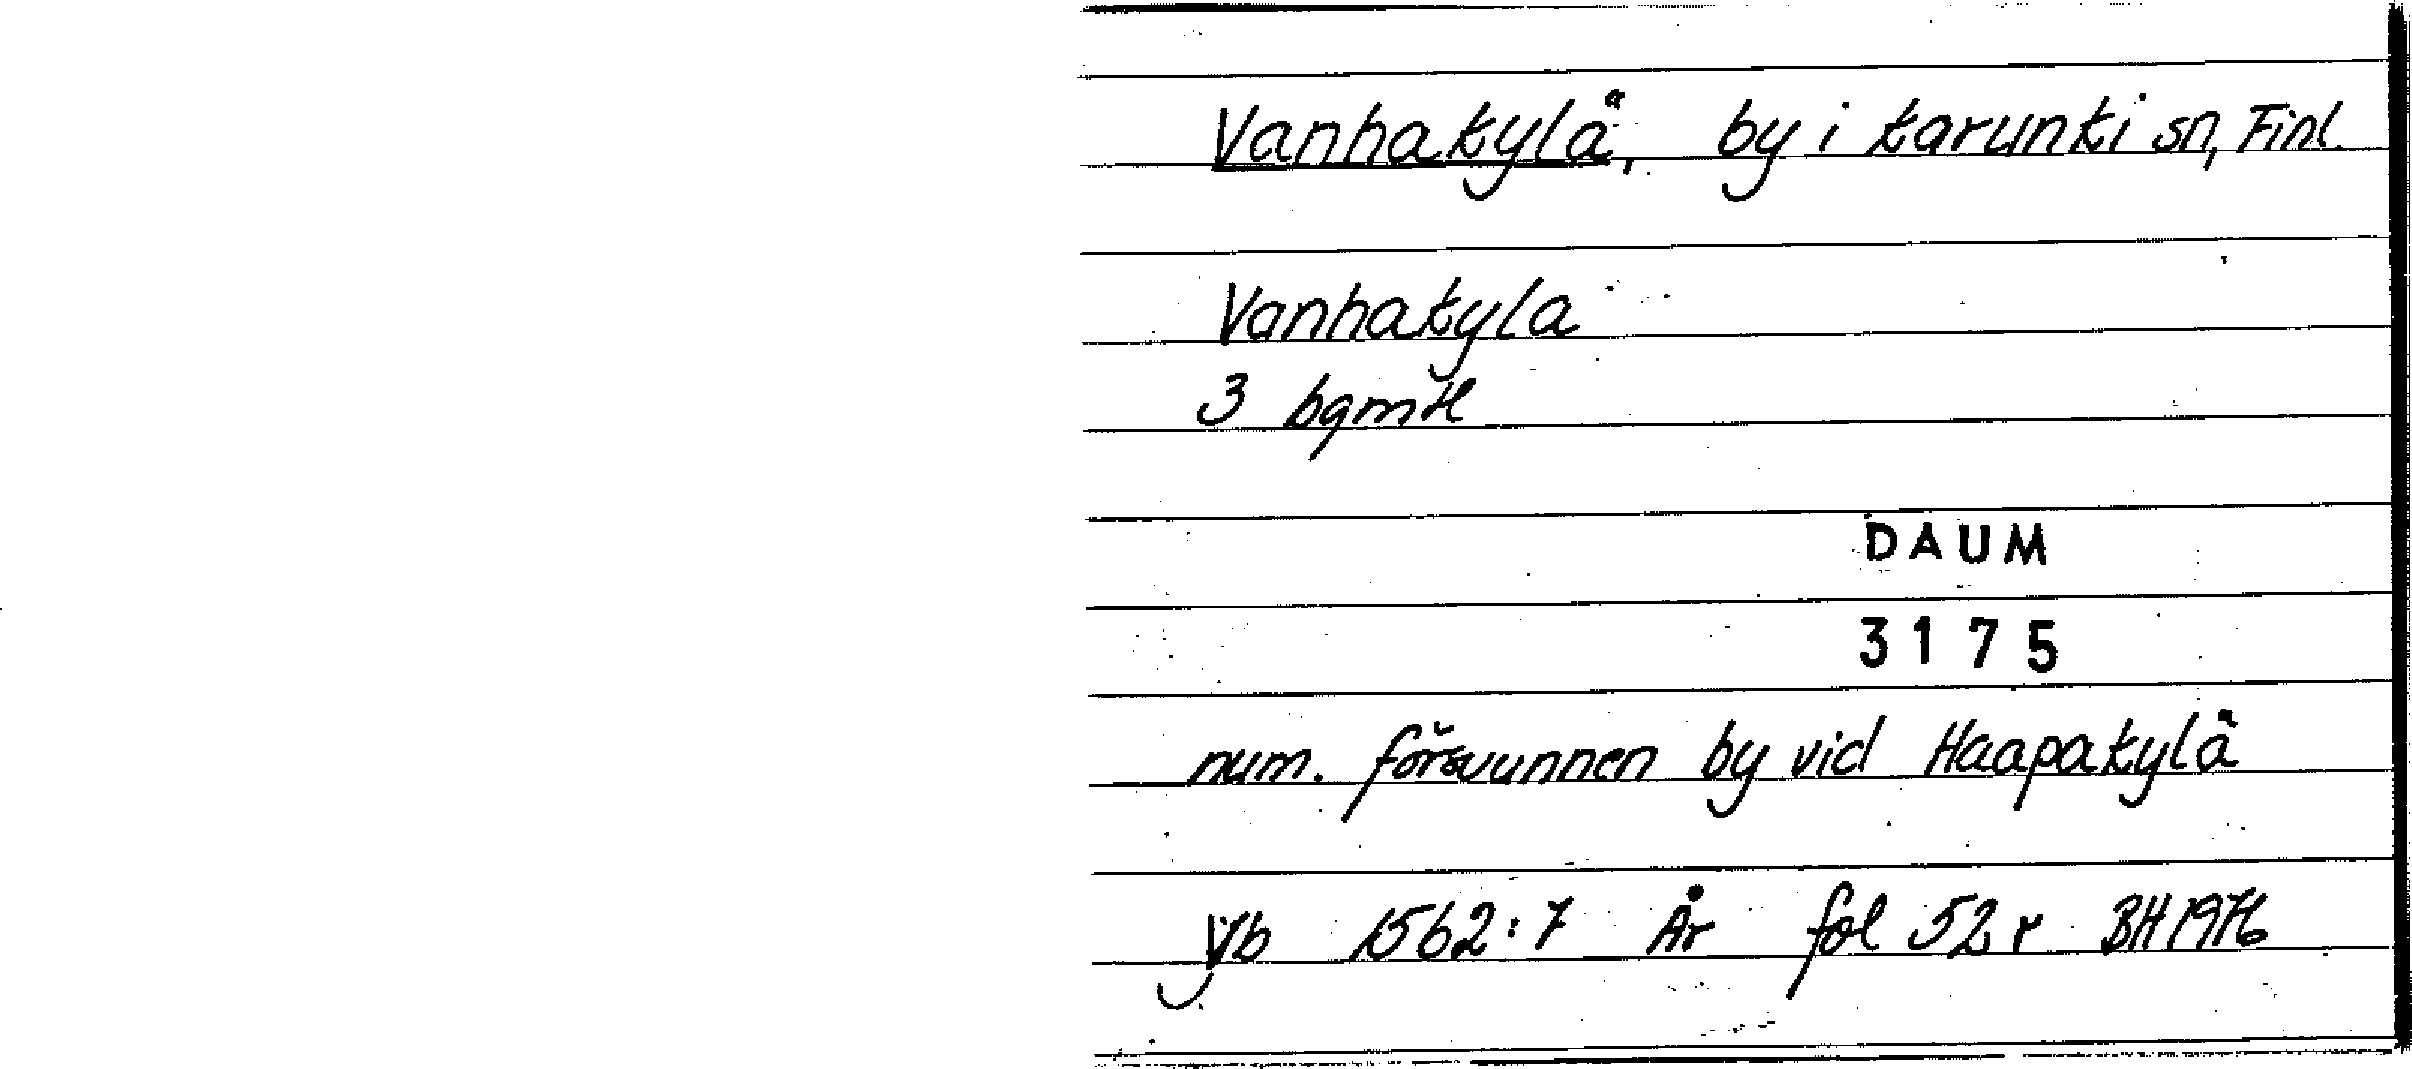 Vanhakylä, by i Karunki sn, Finl.
Vanhakyla
3 bqmtl
DAUM
3175
num. försvunnen by vid Haapakylä
Jb 1562:7 År fol 52r BH 1976